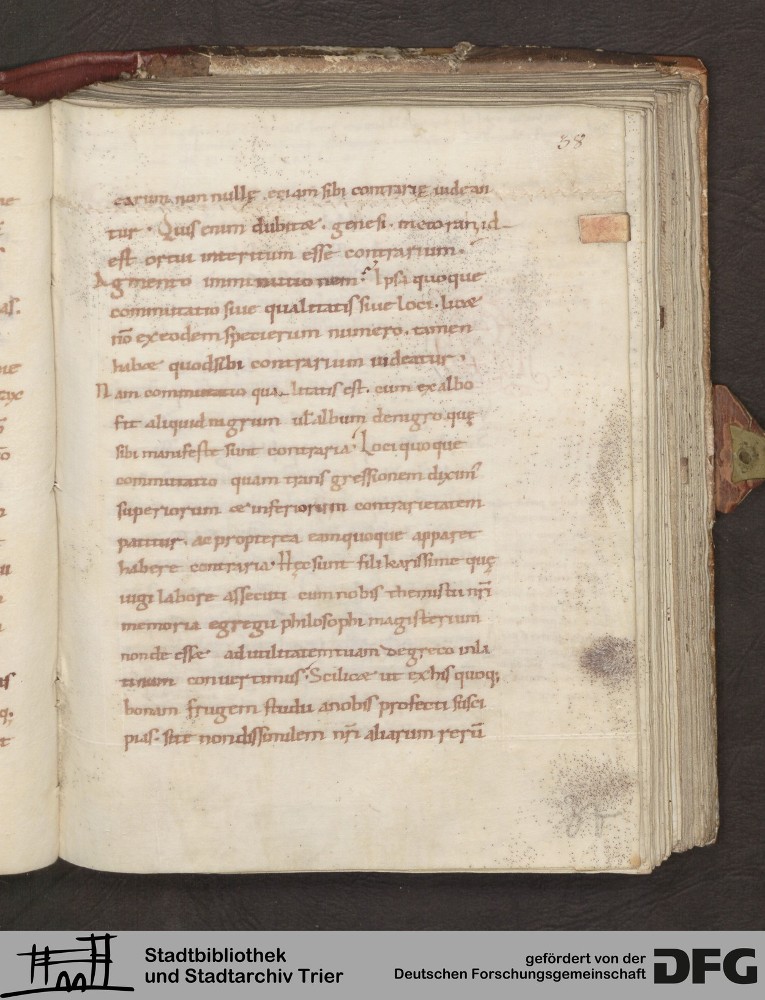 38
earum non nullę. etiam sibi contrarię uidean
tur. Quis enim dubitæ. genesi. meto ran, id
est ortui interitum esse contrarium.
Agmento imminutionem. Ipsa quoque
commutatio siue qualitatis siue loci. licæ
nō ex eodem specierum numero. tamen
habæ quod sibi contrarium uideatur.
Nam commutatio qualitatis est. cum ex albo
fit aliquid nigrum ul album de nigro quę
sibi manifeste sunt contraria. Loci quoque
commutatio quam transgressionem diximꝰ
superiorum æ inferiorum contrarietatem
patitur. ac propterea eam quoque apparet
habere contraria. Hęc sunt fili karissime quę
uigi labore assecuti cum nobis themistii nr̄i
memoria egregii philosophi magisterium
non de esset ad utilitatem tuam de greco in la
tinum conuertimus. Scilicæ ut ex his quoq;
bonam frugem studii a nobis profecti susci
pias. sit te non dissimilem nr̄i aliarum rerū
Stadtbibliothek
und Stadtarchiv Trier
gefördert von der
Deutschen Forschungsgemeinschaft
DFG